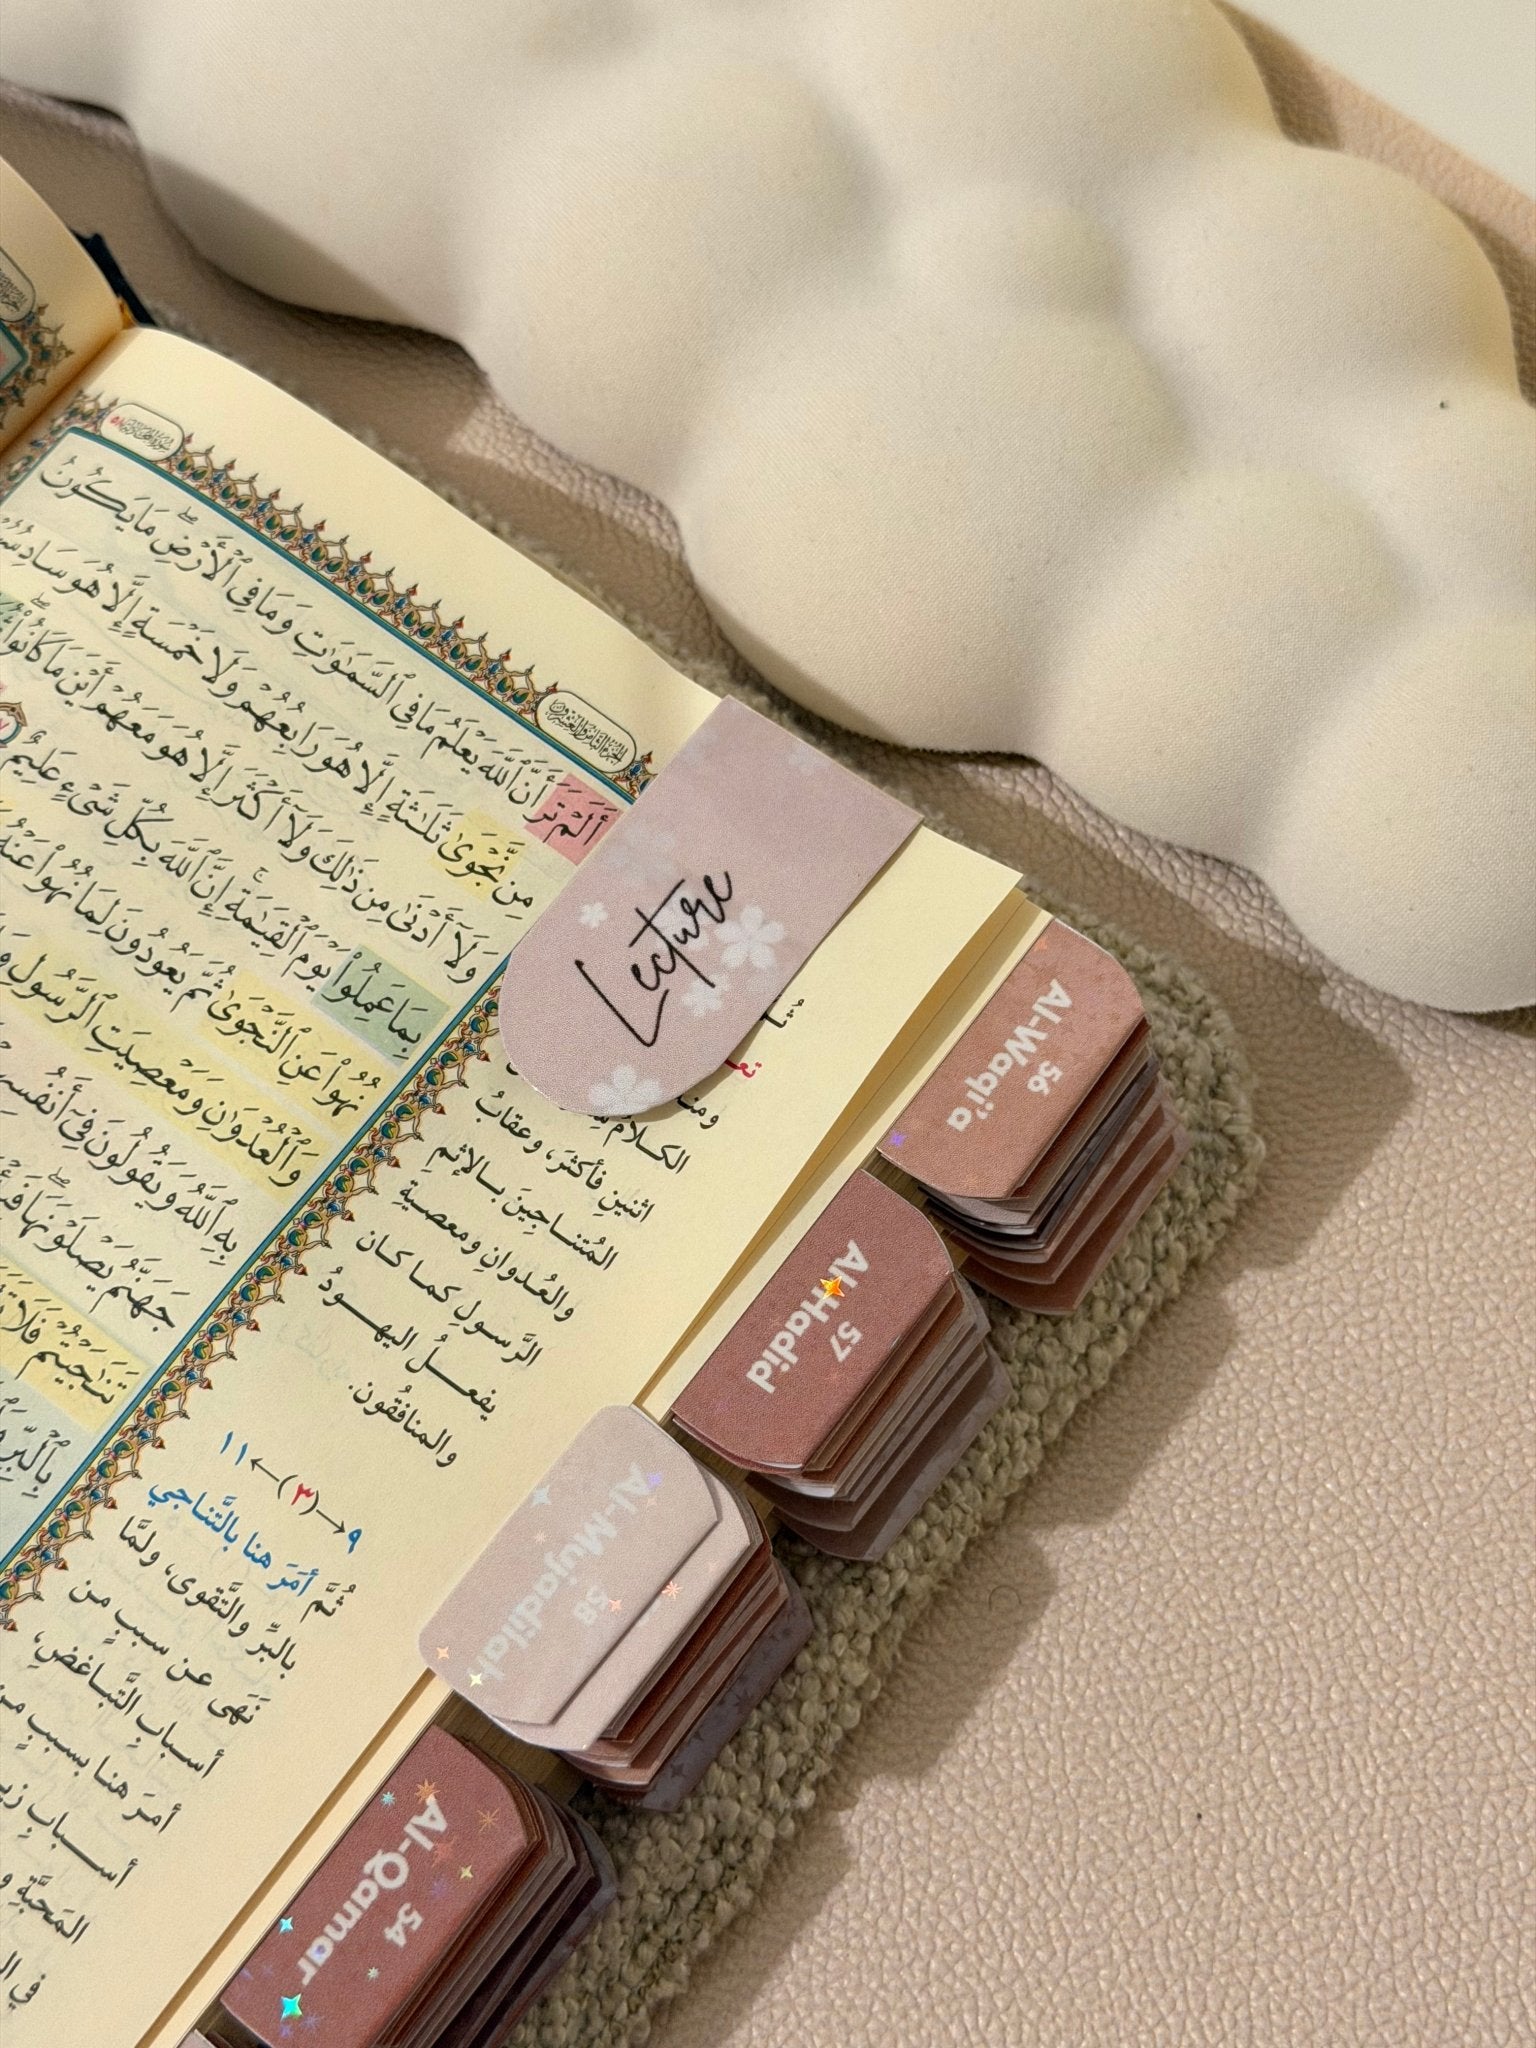 أَلَمْ تَرَ أَنَّ ٱللَّهَ يَعْلَمُ مَا فِى ٱلسَّمَٰوَٰتِ وَمَا فِى ٱلْأَرْضِ ۖ مَا يَكُونُ
مِن نَّجْوَىٰ ثَلَٰثَةٍ إِلَّا هُوَ رَابِعُهُمْ وَلَا خَمْسَةٍ إِلَّا هُوَ
وَلَآ أَدْنَىٰ مِن ذَٰلِكَ وَلَآ أَكْثَرَ إِلَّا هُوَ مَعَهُمْ أَيْنَ مَا كَانُوا۟ ۖ
بِمَا عَمِلُوا۟ يَوْمَ ٱلْقِيَٰمَةِ ۚ إِنَّ ٱللَّهَ بِكُلِّ شَىْءٍ عَلِيمٌ
نُهُوا۟ عَنِ ٱلنَّجْوَىٰ ثُمَّ يَعُودُونَ لِمَا نُهُوا۟ عَنْهُ
وَٱلْعُدْوَٰنِ وَمَعْصِيَتِ ٱلرَّسُولِ
بِهِ ٱللَّهُ وَيَقُولُونَ فِىٓ أَنفُسِهِمْ
جَهَنَّمُ يَصْلَوْنَهَا ۖ
تَنَٰجَيْتُمْ فَلَا
بِٱلْبِرِّ
Lecture
اثنينِ فأكثرَ، وعقابُ
المُتناجِينَ بالإثمِ
والعُدوانِ ومعصيةِ
الرَّسولِ كما كان
يفعلُ اليهودُ
والمنافُقون.
٩←(٣)→١١
ثُمَّ أمَرَ هنا بالتَّناجي
بالبِّر والتَّقوى، ولمَّا
نَهَى عن سببٍ من
أسبابِ التَّباغضِ،
أمرَ هنا بسببٍ
أسبابِ
المَحبَّةِ
Al-Waqi'a
56
Al-Hadid
57
Al-Mujadilah
58
Al-Qamar
54